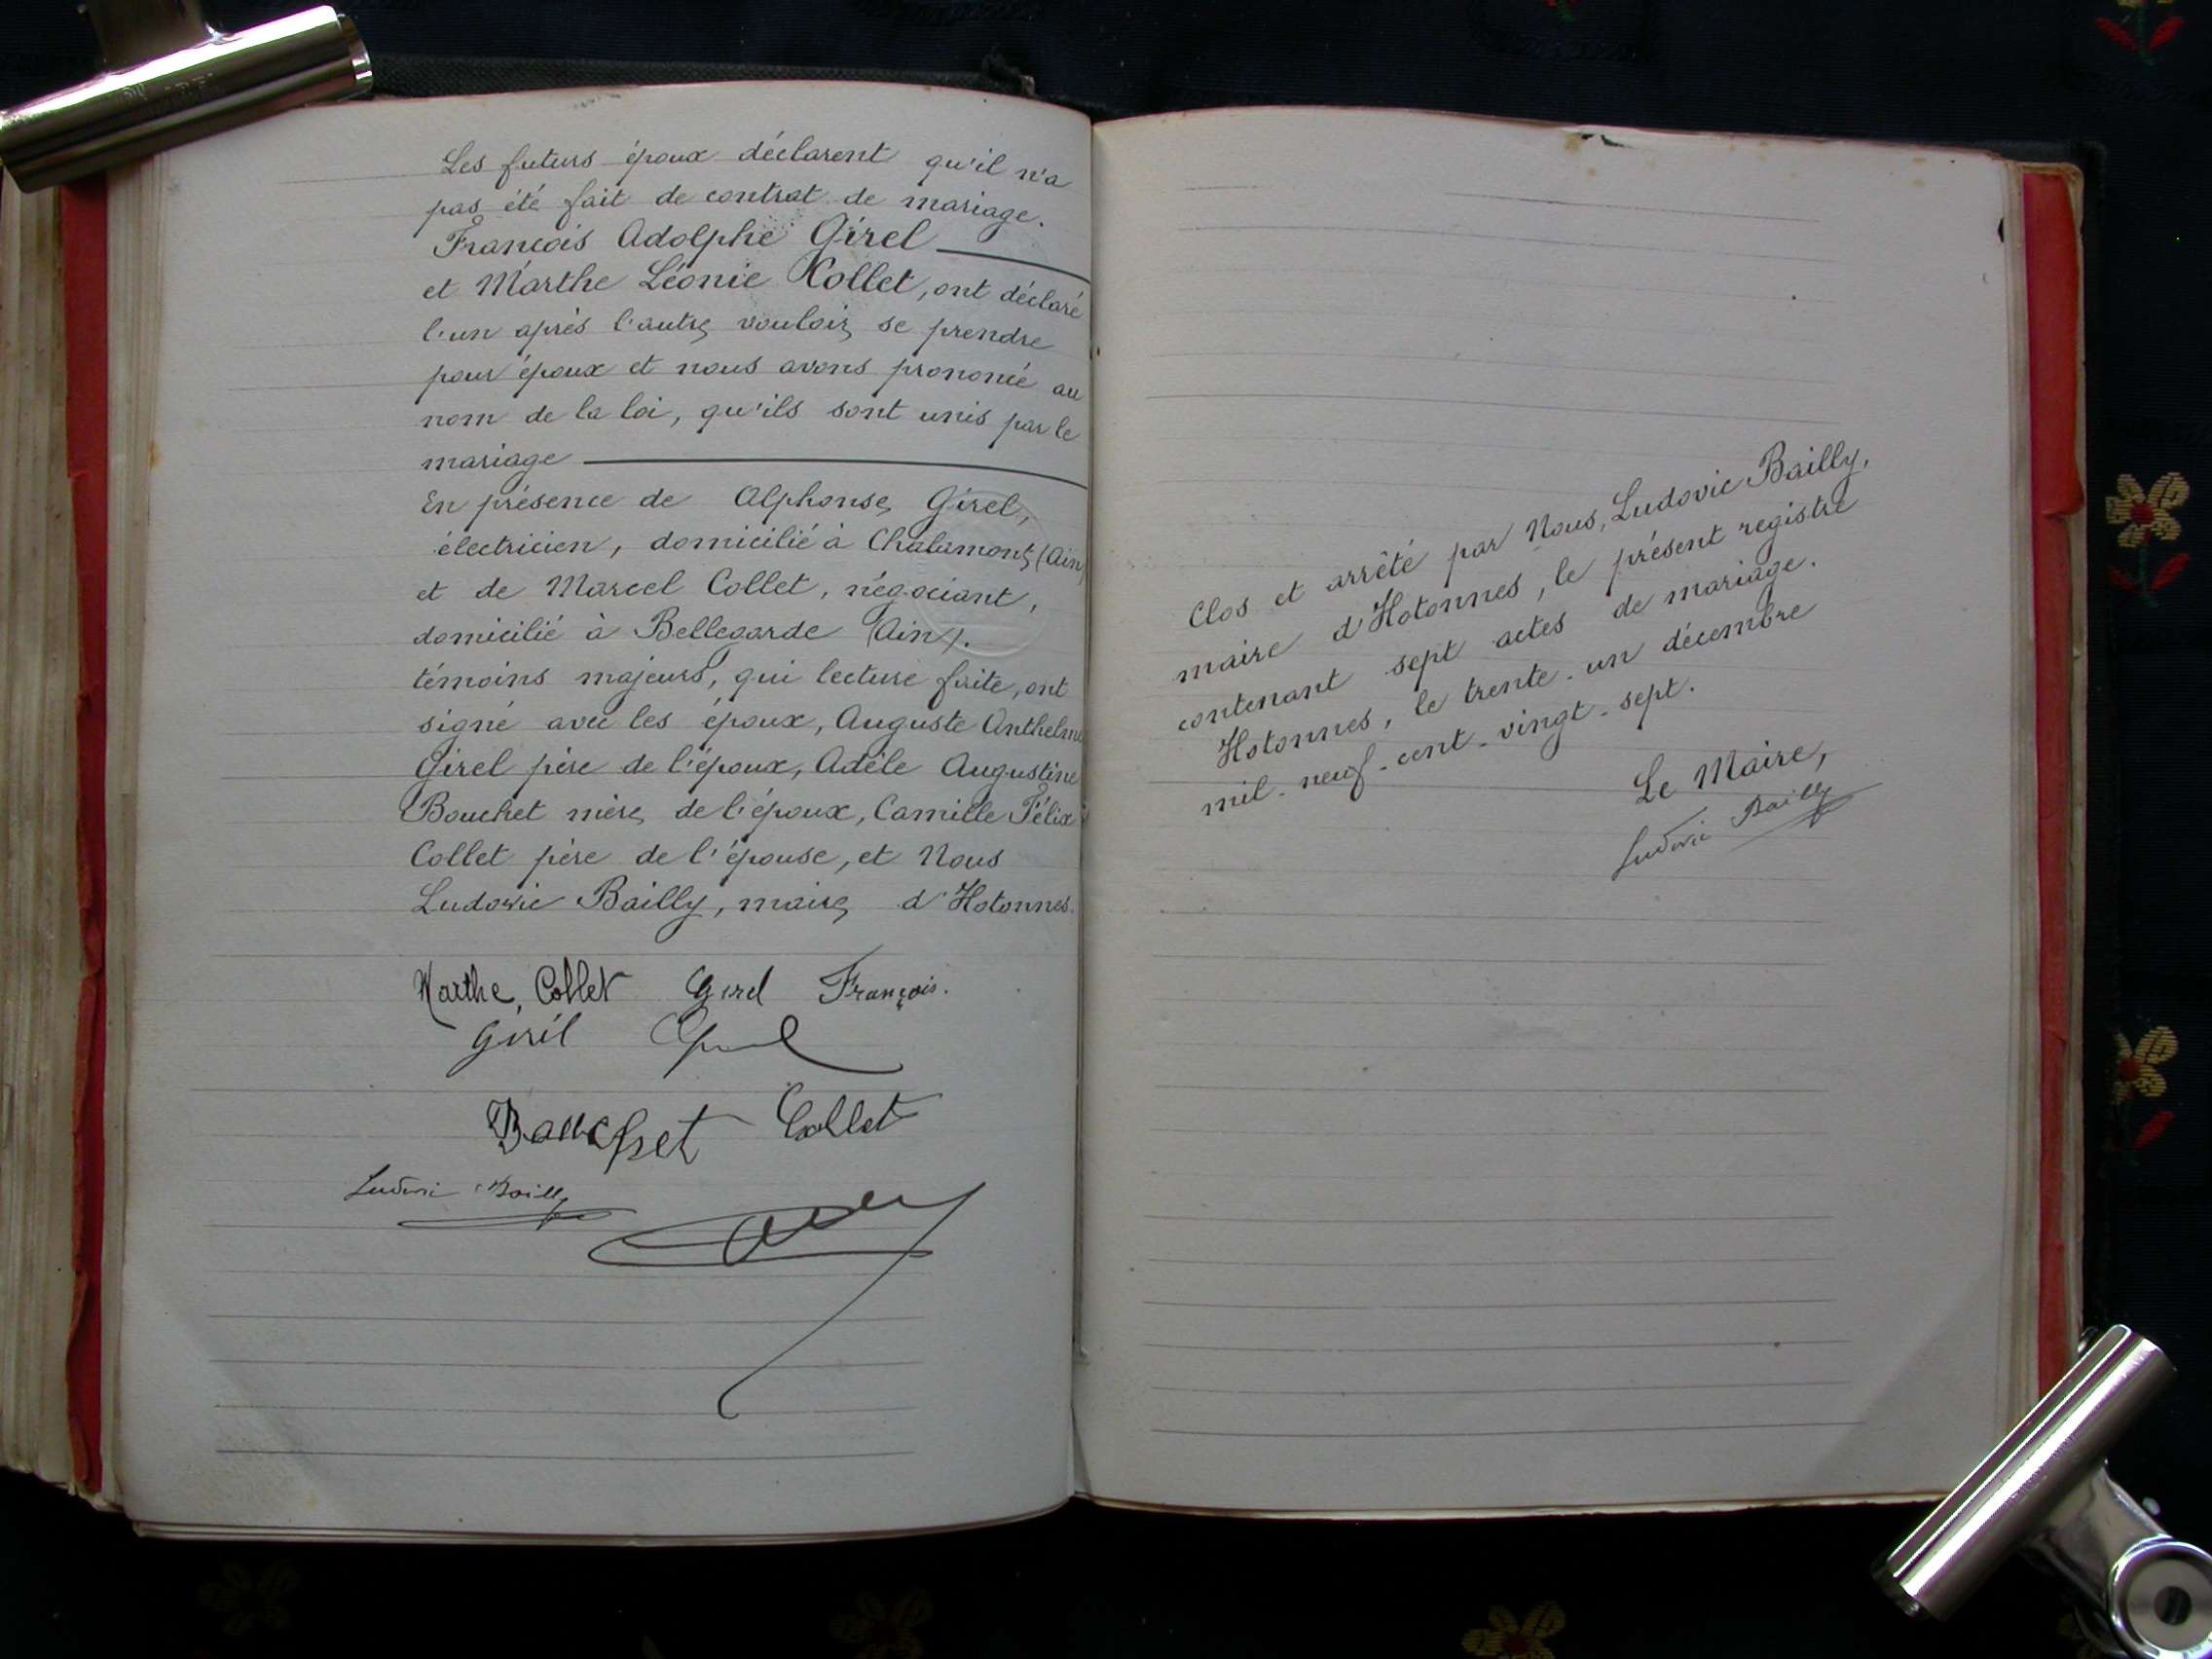 Les futurs époux déclarent qu'il n'a
pas été fait de contrat de mariage.
François Adolphe Girel
et Marthe Léonie Collet, ont déclaré
l'un après l'autre vouloir se prendre
pour époux et nous avons prononcé au
nom de la loi, qu'ils sont unis par le
mariage
En présence de Alphonse Girel,
électricien, domicilié à Chalamont (Ain)
et de Marcel Collet, négociant,
domicilié à Bellegarde (Ain).
témoins majeurs, qui lecture faite, ont
signé avec les époux, Auguste Anthelme
Girel père de l'époux, Adèle Augustine
Bouchet mère de l'époux, Camille Félix
Collet père de l'épouse, et Nous
Ludovic Bailly, maire d'Hotonnes.
Marthe Collet Girel François.
Girel
Bouchet Collet
Ludovic Bailly
Clos et arrêté par Nous, Ludovic Bailly,
maire d'Hotonnes, le présent registre
contenant sept actes de mariage.
Hotonnes, le trente-un décembre
mil-neuf-cent-vingt-sept.
Le Maire,
Ludovic Bailly